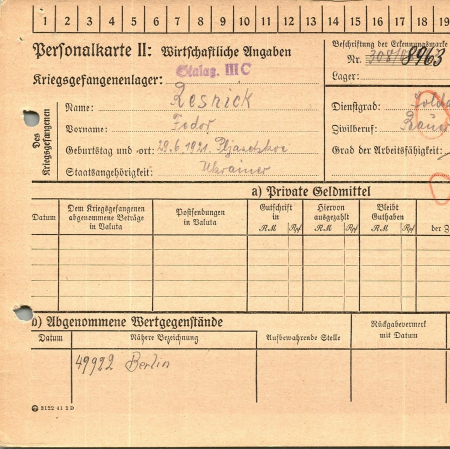 1 2 3 4 5 6 7 8 9 10 11 12 13 14 15 16 17 18 19
Personalkarte II: Wirtschaftliche Angaben
Beschriftung der Erkennungsmarke
Nr. 8963
Kriegsgefangenenlager: Stalag. III C
Lager:
Des Kriegsgefangenen
Name: Resnick
Dienstgrad: Solda
Vorname: Fedor
Zivilberuf: Bauer
Geburtstag und -ort: 29.6.1921.
Grad der Arbeitsfähigkeit:
Staatsangehörigkeit: Ukrainer
a) Private Geldmittel
Datum
Dem Kriegsgefangenen abgenommene Beträge in Valuta
Postsendungen in Valuta
Gutschrift in
RM Rpf
Hiervon ausgezahlt
RM Rpf
Bleibt Guthaben
RM Rpf
der Z
b) Abgenommene Wertgegenstände
Datum
Nähere Bezeichnung
Aufbewahrende Stelle
Rückgabevermerk mit Datum
49922 Berlin
3122 41 2 D